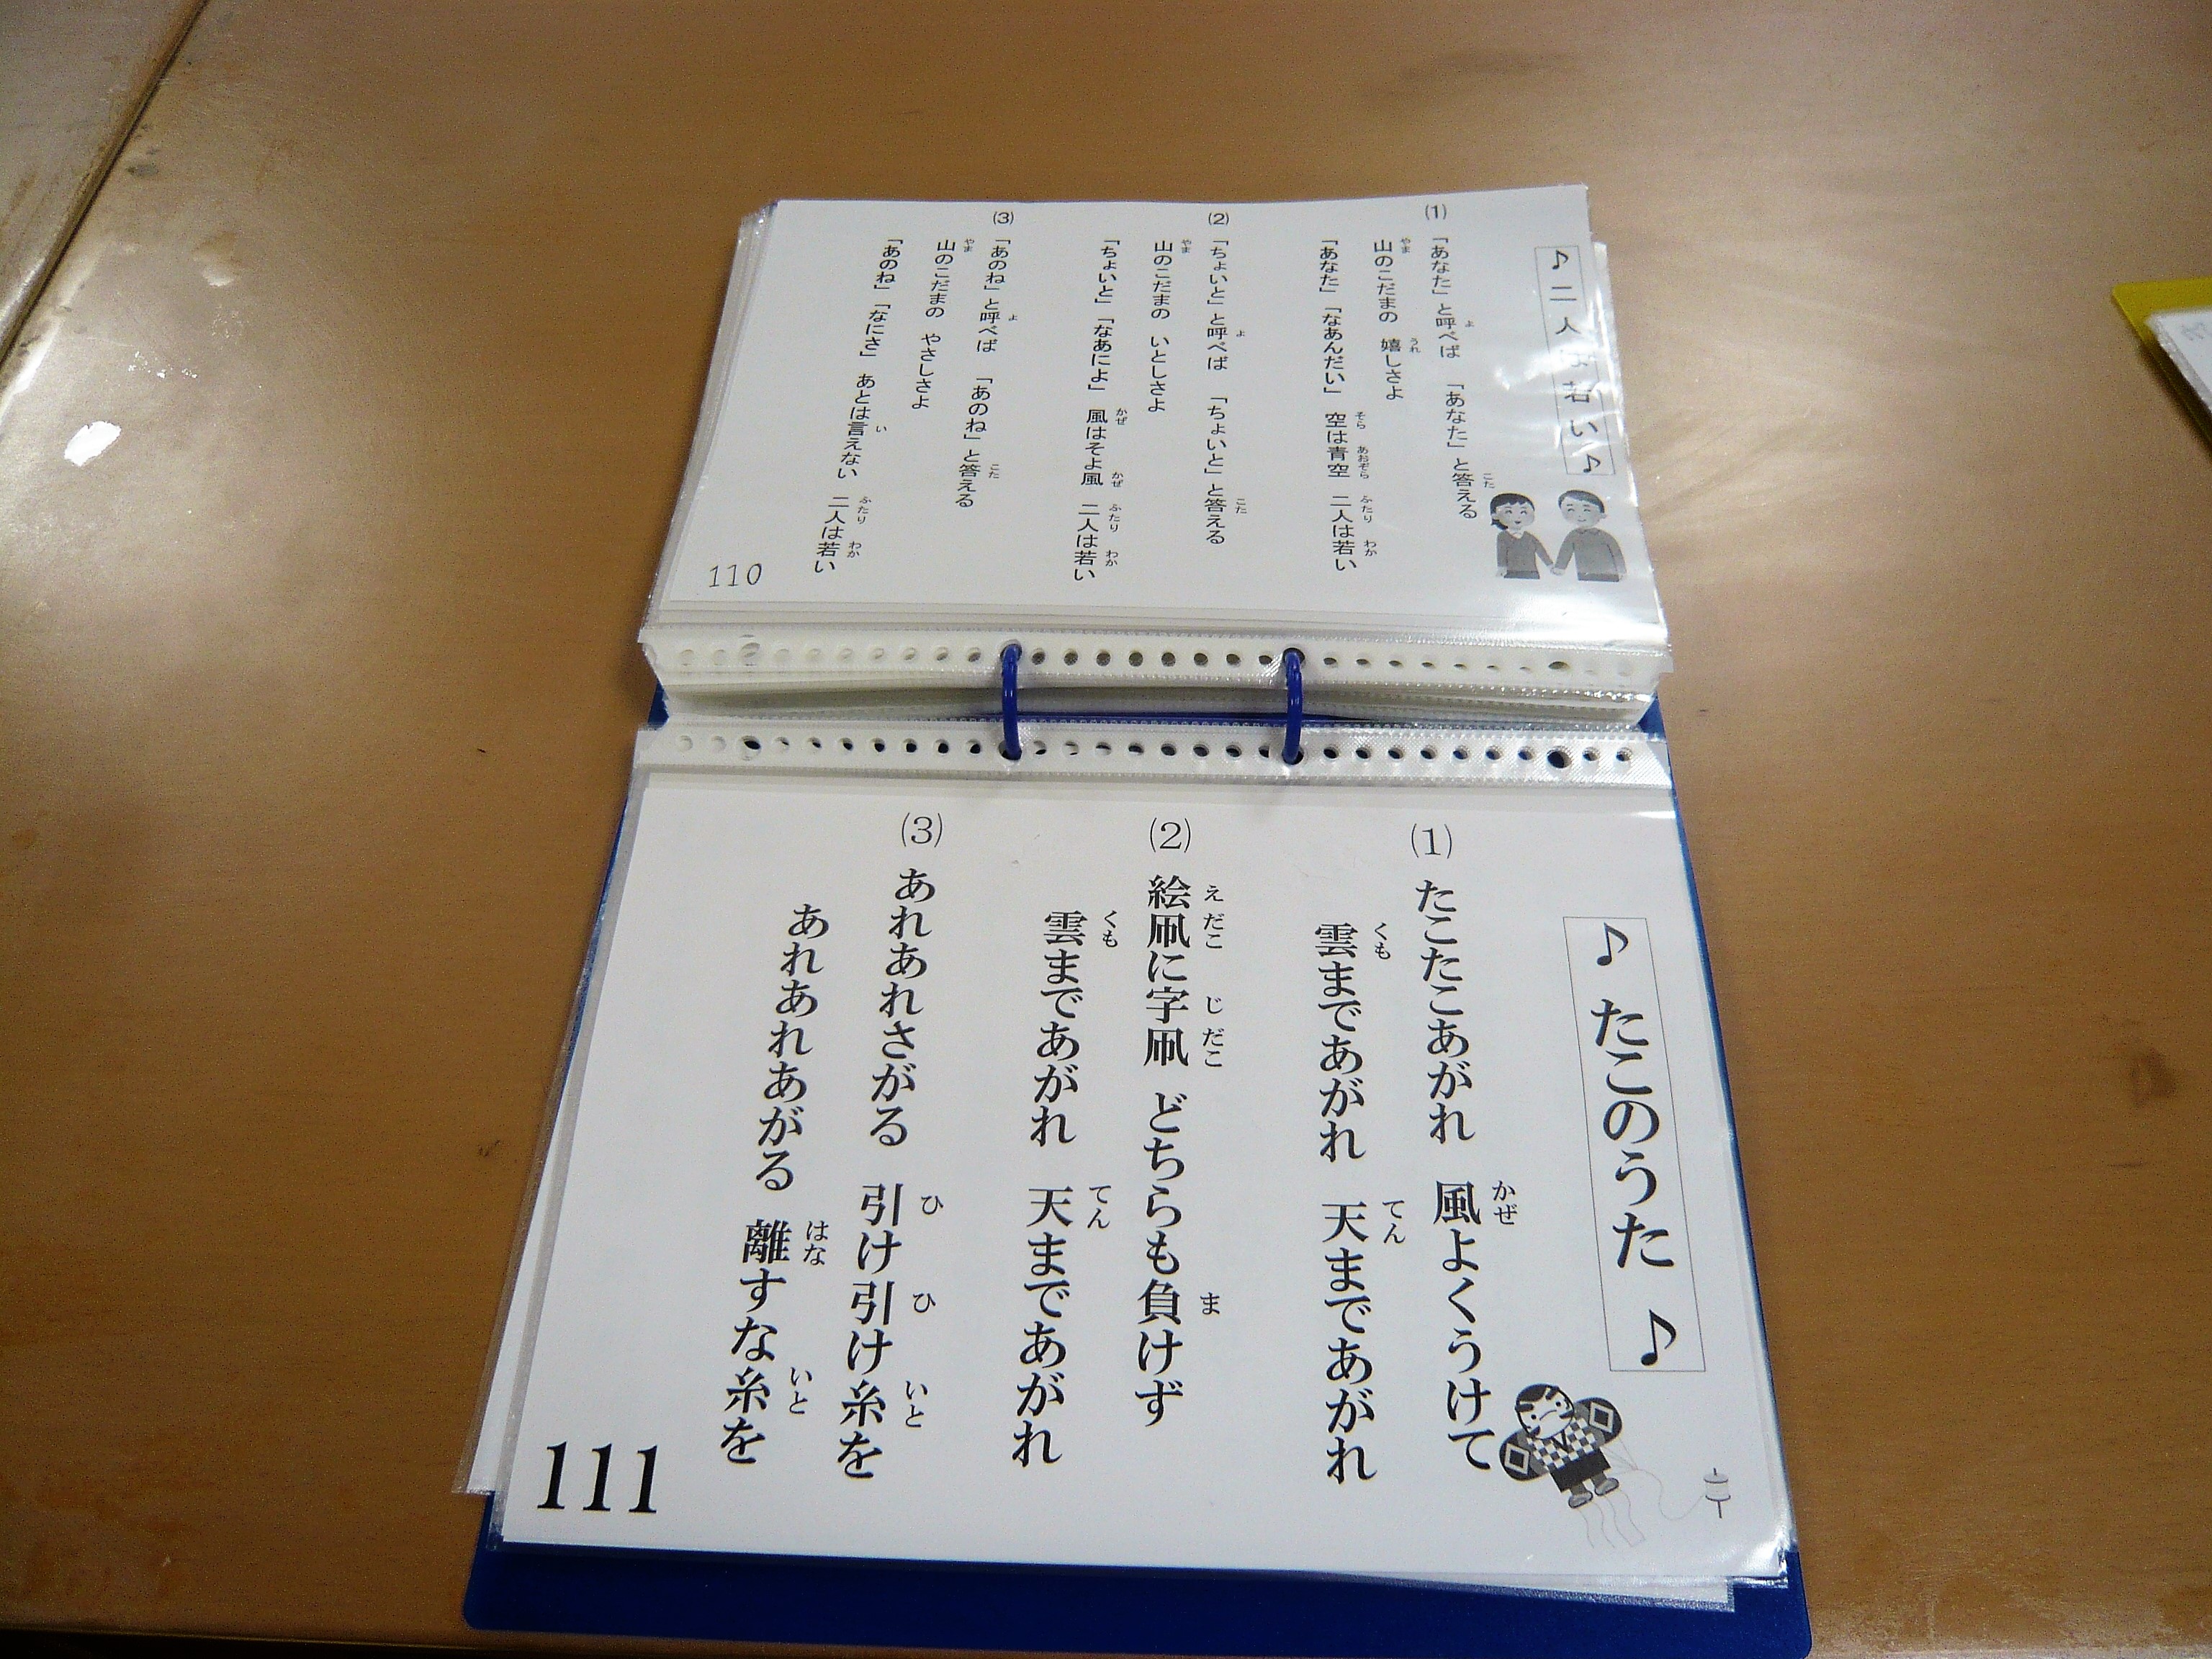 ♪二人は若い♪
(1)「あなた」と呼べば 「あなた」と答える
山のこだまの 嬉しさよ
「あなた」「なあんだい」 空は青空 二人は若い
(2)「ちょいと」と呼べば 「ちょいと」と答える
山のこだまの いとしさよ
「ちょいと」「なあによ」 風はそよ風 二人は若い
(3)「あのね」と呼べば 「あのね」と答える
山のこだまの やさしさよ
「あのね」「なにさ」 あとは言えない 二人は若い
110
♪ たこのうた ♪
(1) たこたこあがれ 風よくうけて
雲まであがれ 天まであがれ
(2) 絵凧に字凧 どちらも負けず
雲まであがれ 天まであがれ
(3) あれあれさがる 引け引け糸を
あれあれあがる 離すな糸を
111